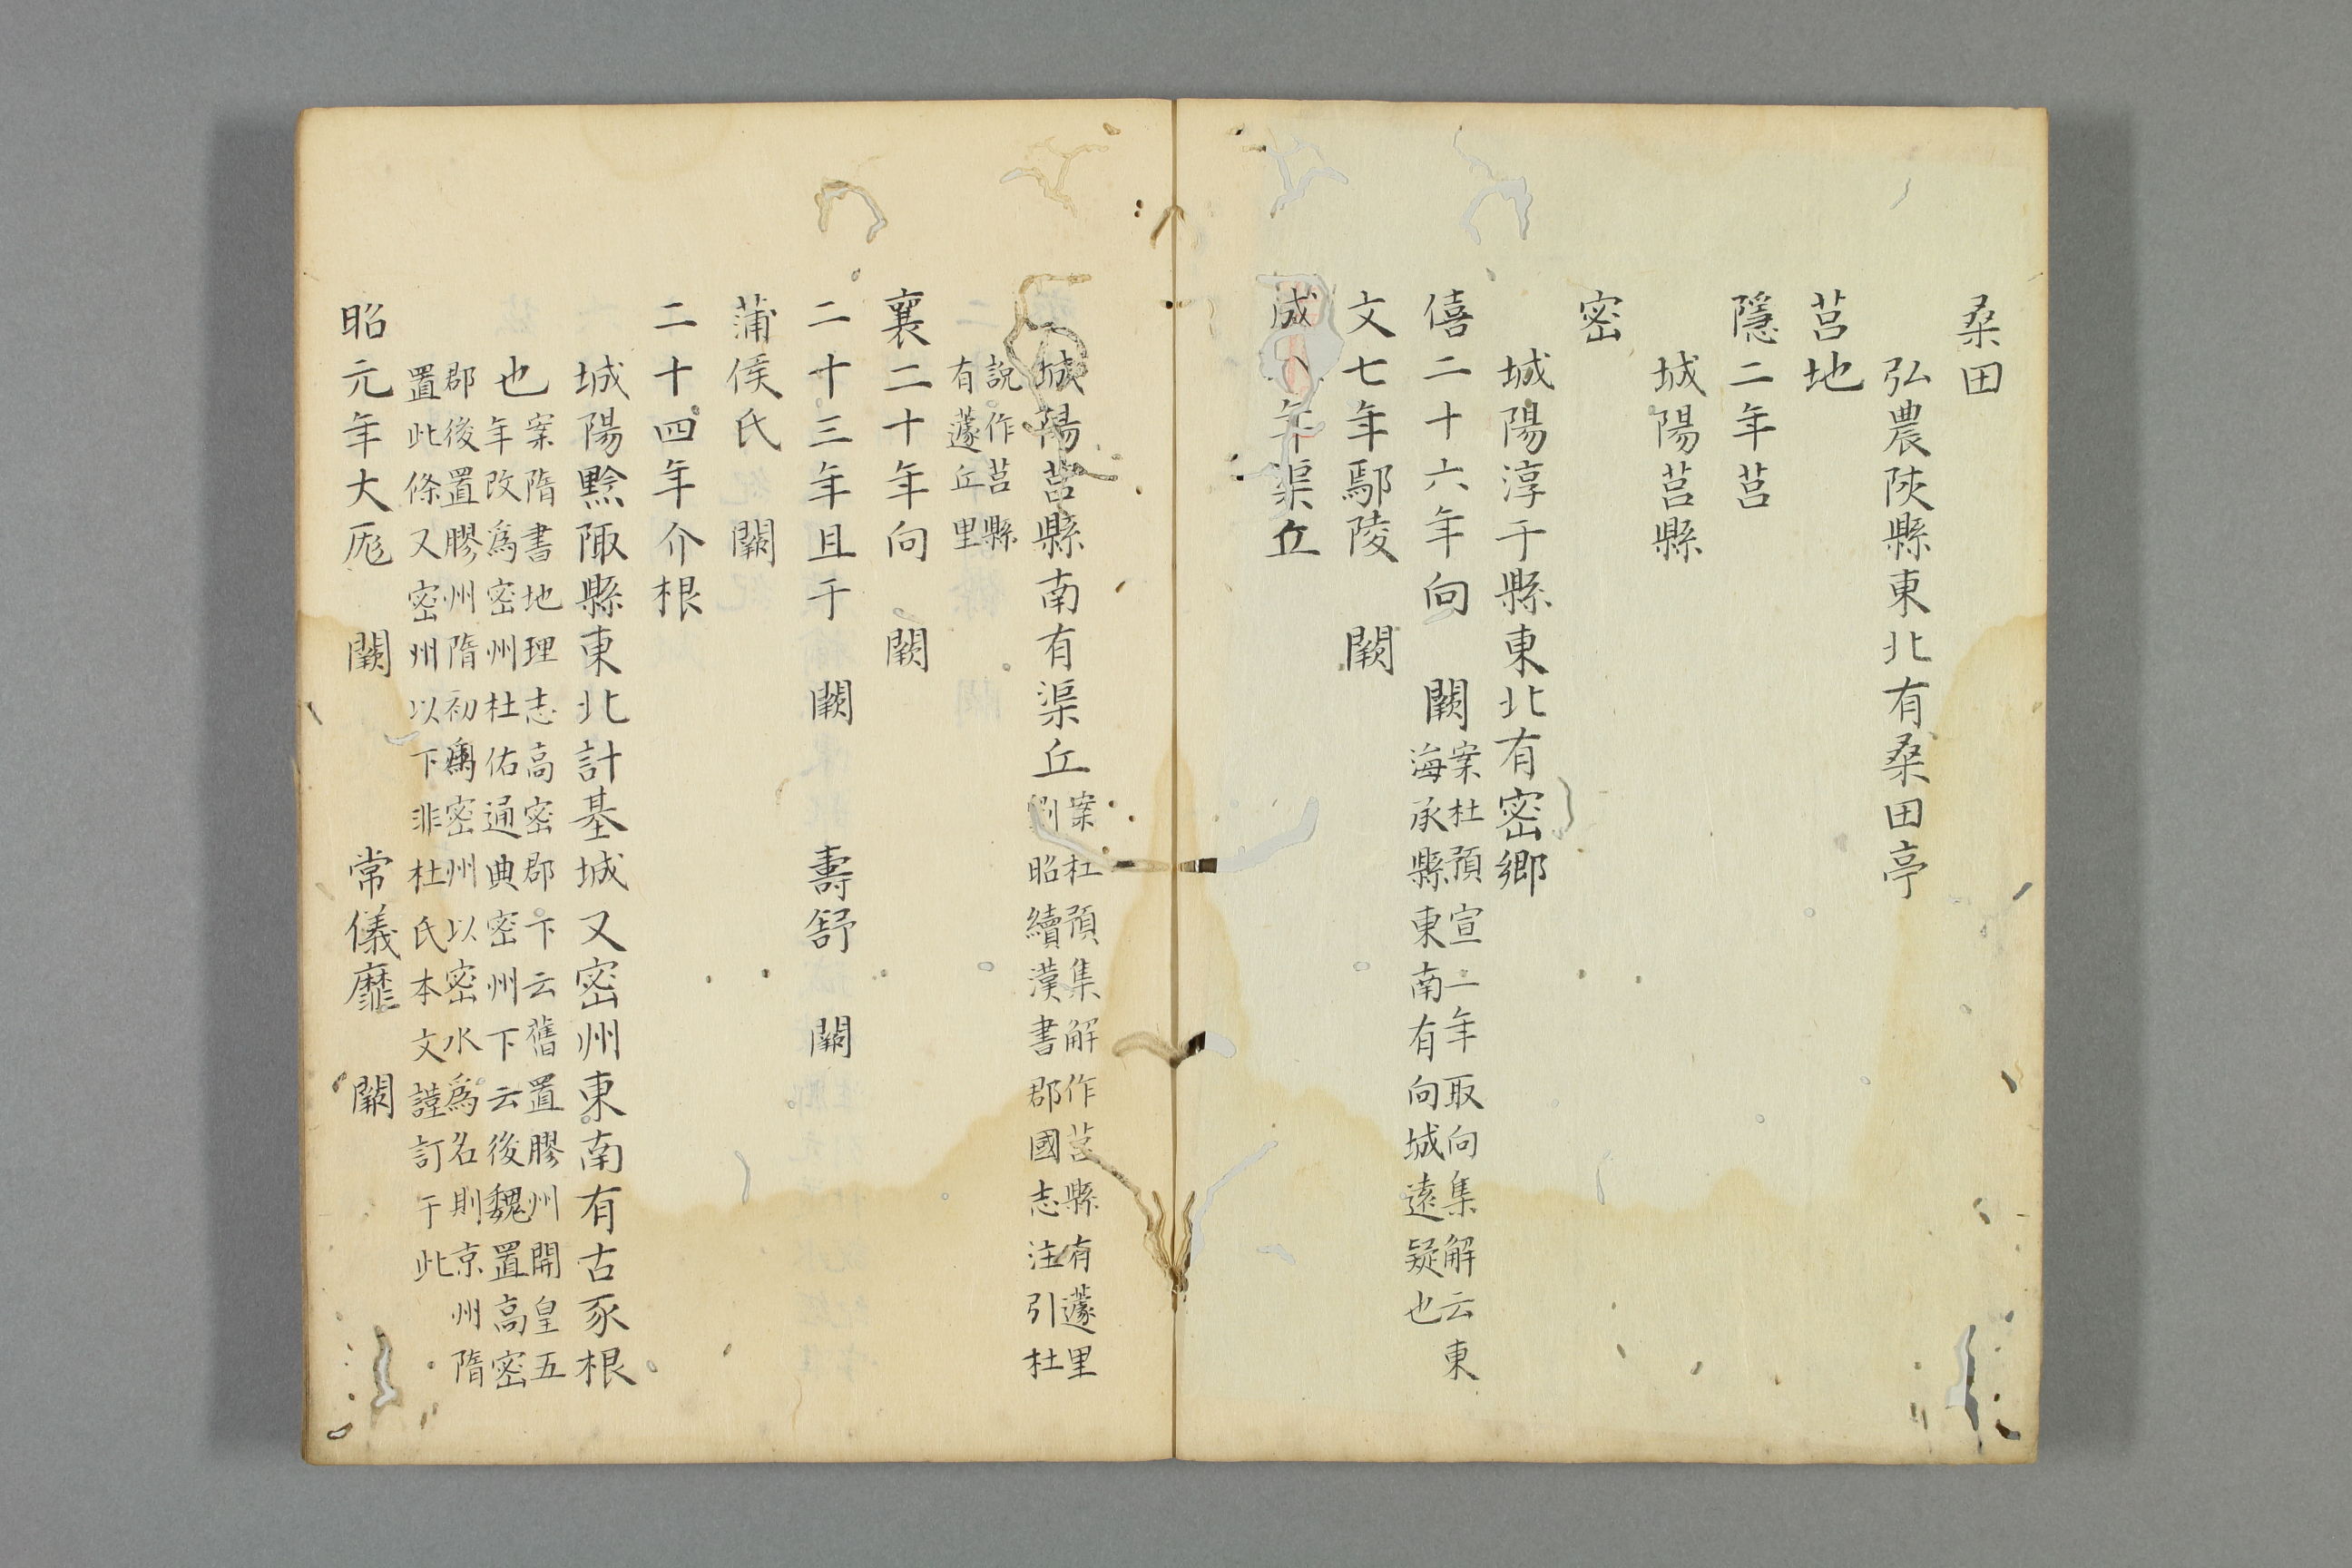 桑田
弘農陝縣東北有桑田亭
莒地
隱二年莒
城陽莒縣
密
城陽淳于縣東北有密鄉
僖二十六年向 闕案杜預宣二年取向集解云東
海承縣東南有向城遠疑也
文七年鄢陵 闕
成八年渠丘
城陽莒縣南有渠丘案杜預集解作莒縣有蘧里
劉昭續漢書郡國志注引杜
說作莒縣
有蘧丘里
襄二十年向 闕
二十三年且于 闕 壽舒 闕
蒲侯氏 闕
二十四年介根
城陽黔陬縣東北計基城又密州東南有古豕根
也案隋書地理志高密郡下云舊置膠州開皇五
年改爲密州杜佑通典密州下云後魏置高密
郡後置膠州隋初爲密州以密水爲名則京州隋
置此條又密州以下非杜氏本文謹訂于此
昭元年大厖 闕 常儀靡 闕